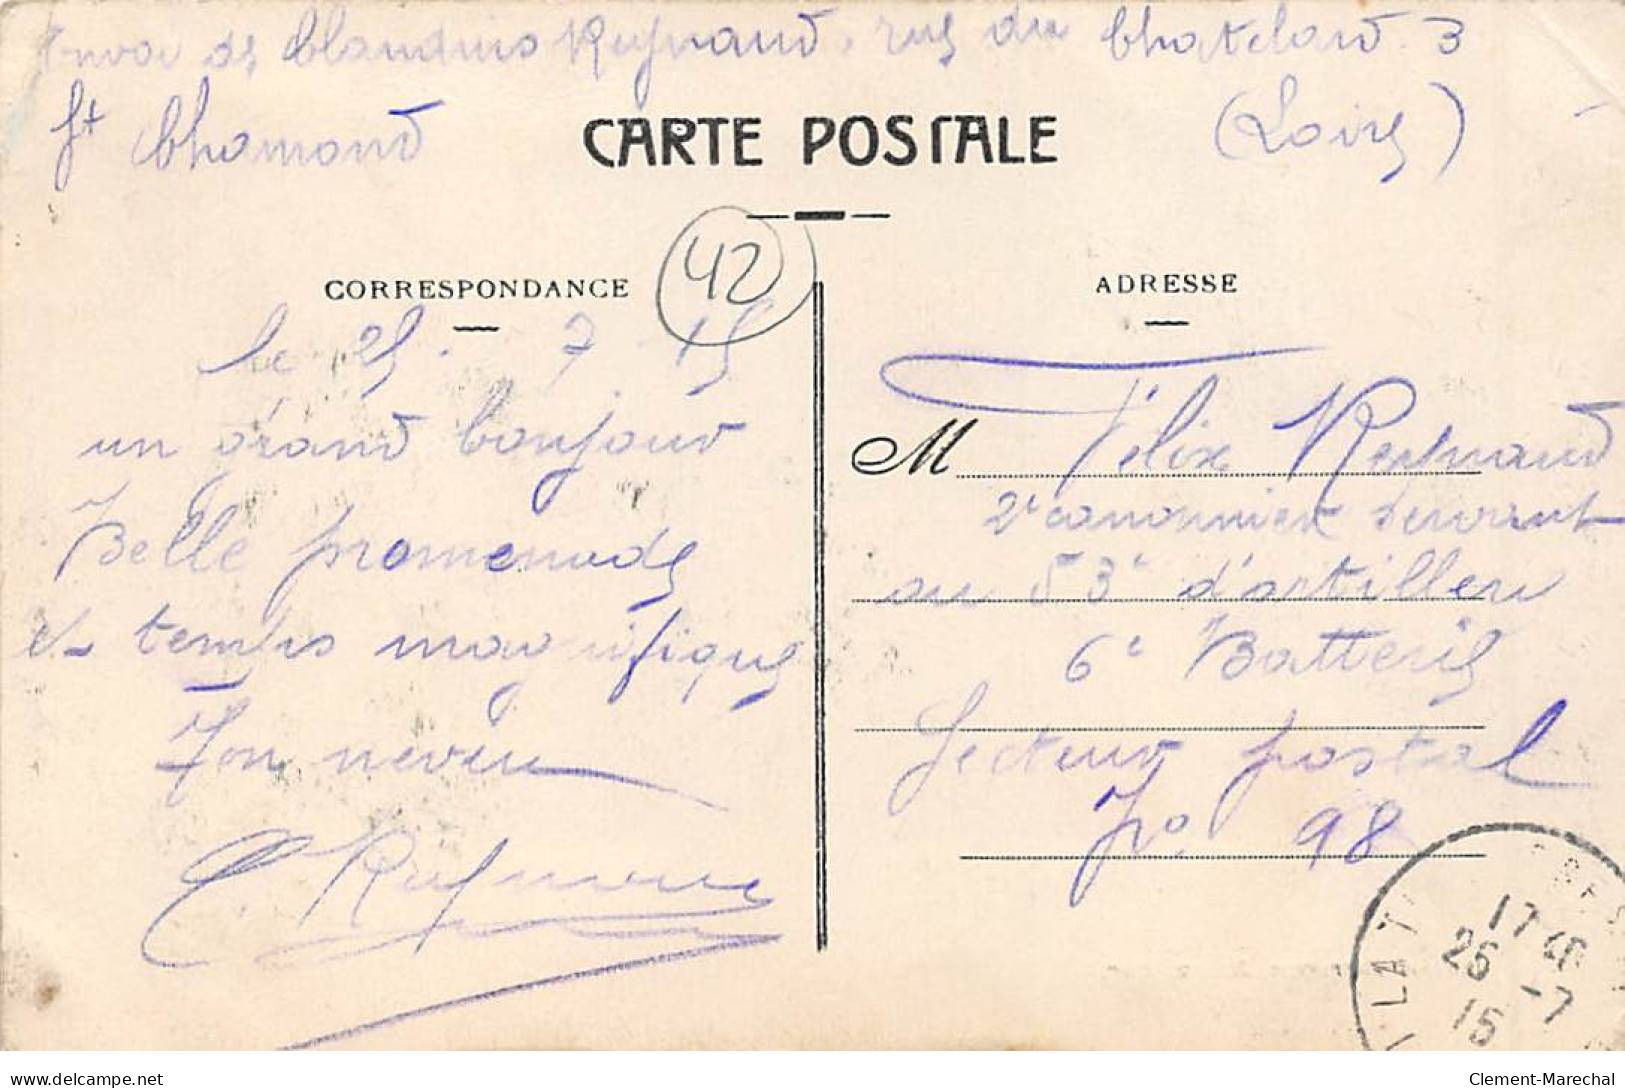 Envoi de Claudius Reynaud, rue du Chatelard 3
St Chamond
(Loire)
CARTE POSTALE
42
CORRESPONDANCE
le 25. 7 15
un grand bonjour
Belle promenade
et temps magnifique
Ton neveu
C. Reynaud
ADRESSE
M Félix Reynaud
2e canonnier servant
au 53e d'artillerie
6e Batterie
Secteur postal
No 98
17 40
25 -7
15
delcampe.net
Clement-Marechal